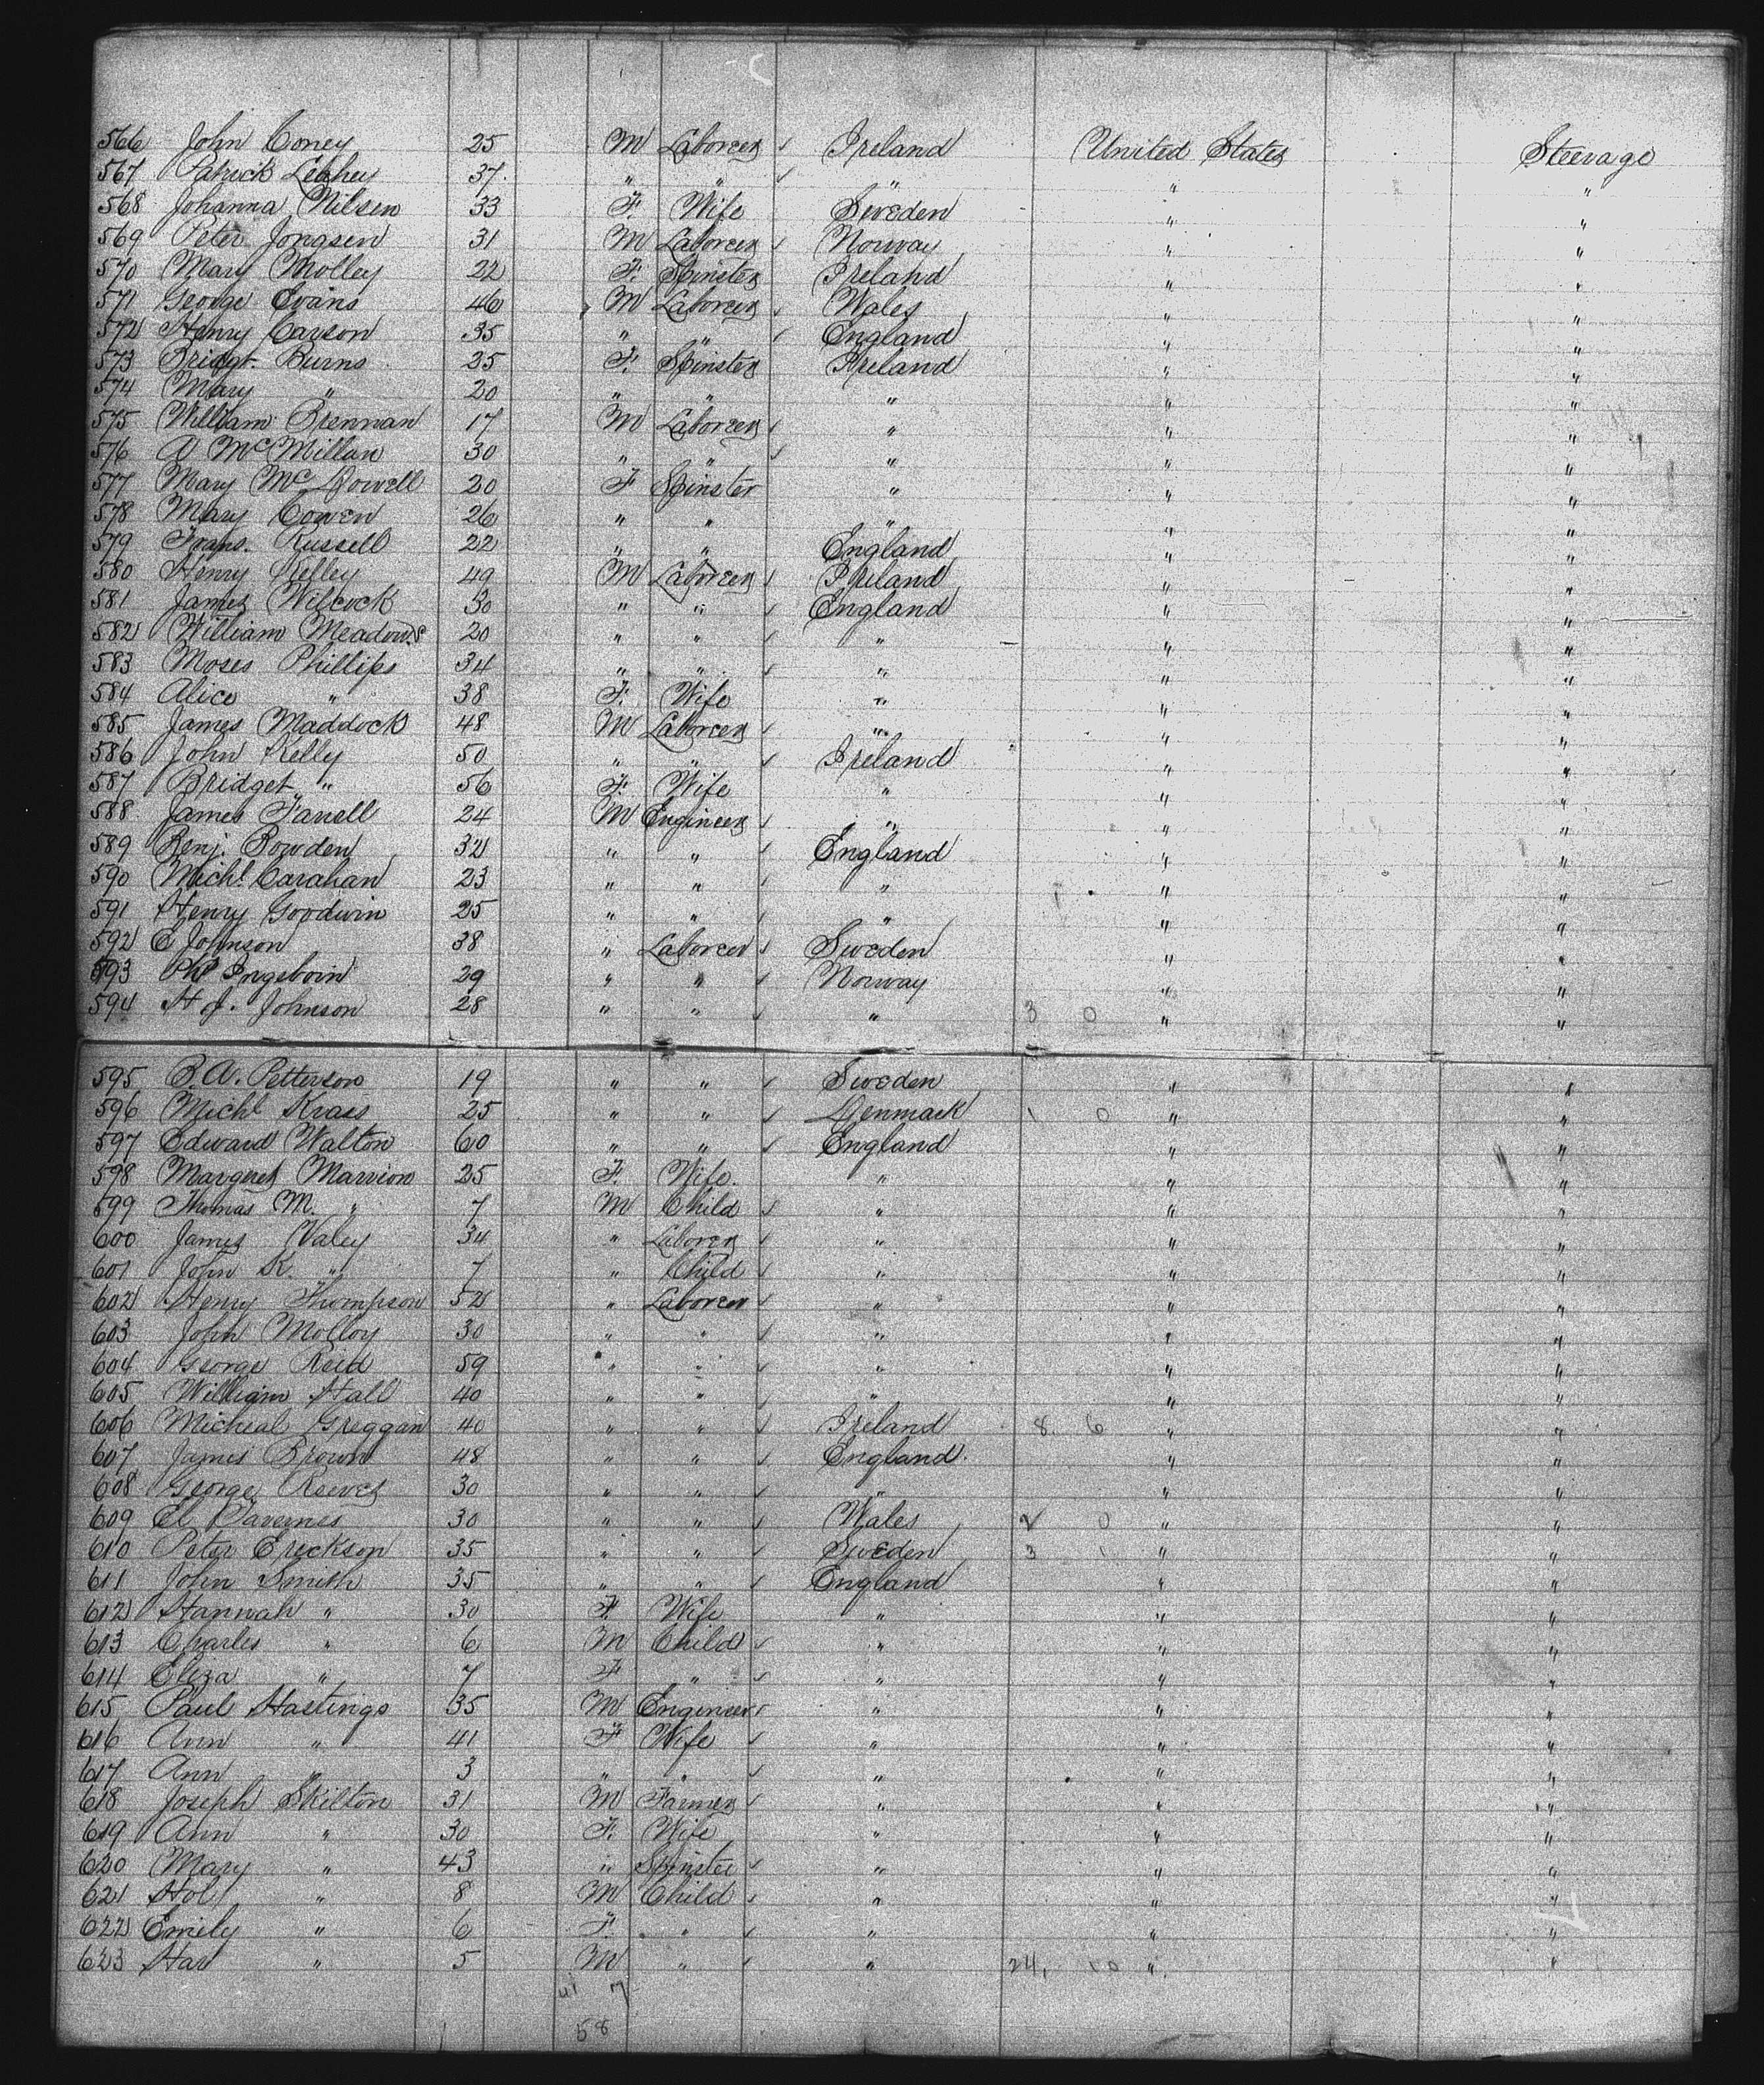 566 John Coney 25 M Laborer Ireland United States Steerage
567 Patrick Leahey 37 " " " " "
568 Johanna Nilsen 33 F. Wife Sweden " "
569 Peter Jongsen 31 M Laborer Norway " "
570 Mary Molley 22 F. Spinster Ireland " "
571 George Evans 46 M Laborer Wales " "
572 Henry Carson 35 " " England " "
573 Bridgt. Burns 25 F. Spinster Ireland " "
574 Mary " 20 " " " " "
575 William Brennan 17 M Laborer " " "
576 A McMillan 30 " " " " "
577 Mary McDowell 20 F Spinster " " "
578 Mary Cowen 26 " " " " "
579 Frans. Russell 22 " " England " "
580 Henry Kelley 49 M Laborer Ireland " "
581 James Wilcock 30 " " England " "
582 William Meadows 20 " " " " "
583 Moses Phillips 34 " " " " "
584 Alice " 38 F. Wife " " "
585 James Maddock 48 M Laborer " " "
586 John Kelly 50 " " Ireland " "
587 Bridget " 56 F. Wife " " "
588 James Farrell 24 M Engineer " " "
589 Benj. Bowden 32 " " England " "
590 Michl. Carahan 23 " " " " "
591 Henry Goodwin 25 " " " " "
592 C Johnson 38 " Laborer Sweden " "
593 29 " " Norway " "
594 H J. Johnson 28 " " " 3 0 " "
595 B. A. Petterson 19 " " Sweden " "
596 Michl Krais 25 " " Denmark 1 0 " "
597 Edward Walton 60 " " England " "
598 Margret Marrion 25 F. Wife. " " "
599 Thomas M. " 7 M Child " " "
600 James Valey 34 " Laborer " " "
601 John K. " 7 " Child " " "
602 Henry Thompson 52 " Laborer " " "
603 John Molloy 30 " " " " "
604 George Reed 59 " " " " "
605 William Hall 40 " " " " "
606 Micheal Greggan 40 " " Ireland 8 6 " "
607 James Brown 48 " " England. " "
608 George Reeves 30 " " " " "
609 30 " " Wales 2 0 " "
610 Peter Erickson 35 " " Sweden 3 1 " "
611 John Smith 35 " " England " "
612 Hannah " 30 F. Wife " " "
613 Charles " 6 M Child " " "
614 Eliza " 7 F " " " "
615 Paul Hastings 35 M Engineer " " "
616 Ann " 41 F Wife " " "
617 Ann " 3 " " " " "
618 Joseph Skilton 31 M Farmer " " "
619 Ann " 30 F. Wife " " "
620 Mary " 43 " Spinster " " "
621 Hol " 8 M Child " " "
622 Emily " 6 F. " " " "
623 Har " 5 M " " 24, 10 " "
41 7
58